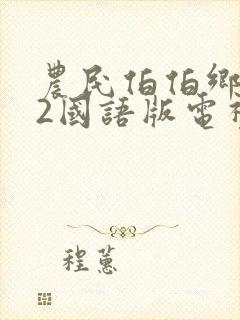 農民伯伯鄉
2國語版電
程蕙